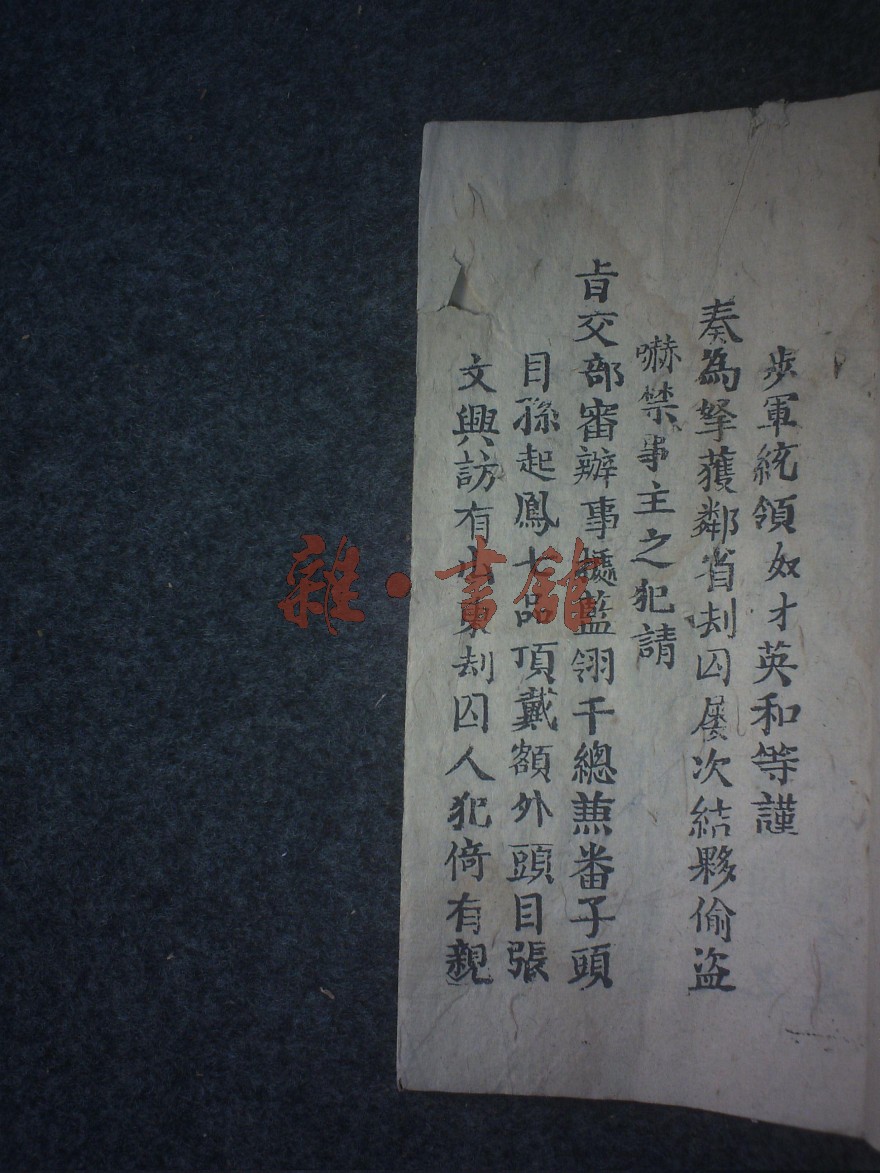 步軍統領奴才英和等謹
奏為拏獲鄰省刦囚屢次結夥偷盜
嚇禁事主之犯請
旨交部審辦事據藍翎千總兼番子頭
目孫起鳳七品頂戴額外頭目張
文興訪有山東刦囚人犯倚有親
雜·書舘